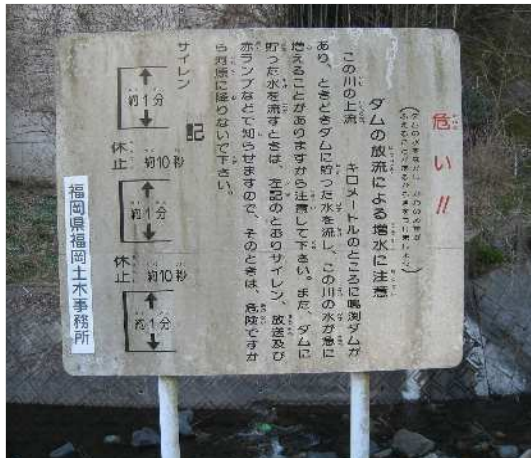 危い!!
ダムの放流による増水に注意
この川の上流 キロメートルのところに鳴渕ダムが
あり、ときどきダムに貯った水を流し、この川の水が急に
増えることがありますから注意して下さい。また、ダムに
貯った水を流すときは、左記のとおりサイレン、放送及び
赤ランプなどで知らせますので、そのときは、危険ですか
ら河原に降りないで下さい。
記
サイレン
約1分
休止 約10秒
約1分
休止 約10秒
約1分
福岡県福岡土木事務所